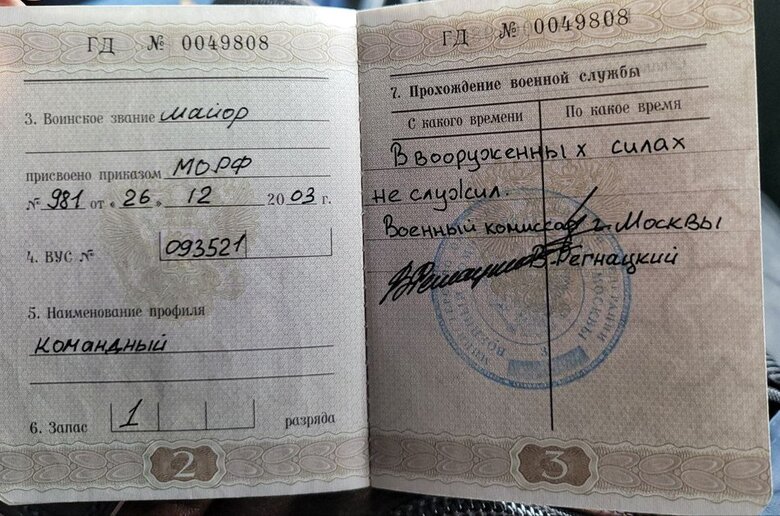 ГД № 0049808
3. Воинское звание майор
присвоено приказом МО РФ
№ 981 от « 26 » 12 2003 г.
4. ВУС № 093521
5. Наименование профиля
командный
6. Запас 1 разряда
2
ГД № 0049808
7. Прохождение военной службы
С какого времени По какое время
В вооруженных силах
не служил.
Военный комиссар г. Москвы
В. Регнацкий
МОСКВЫ
3